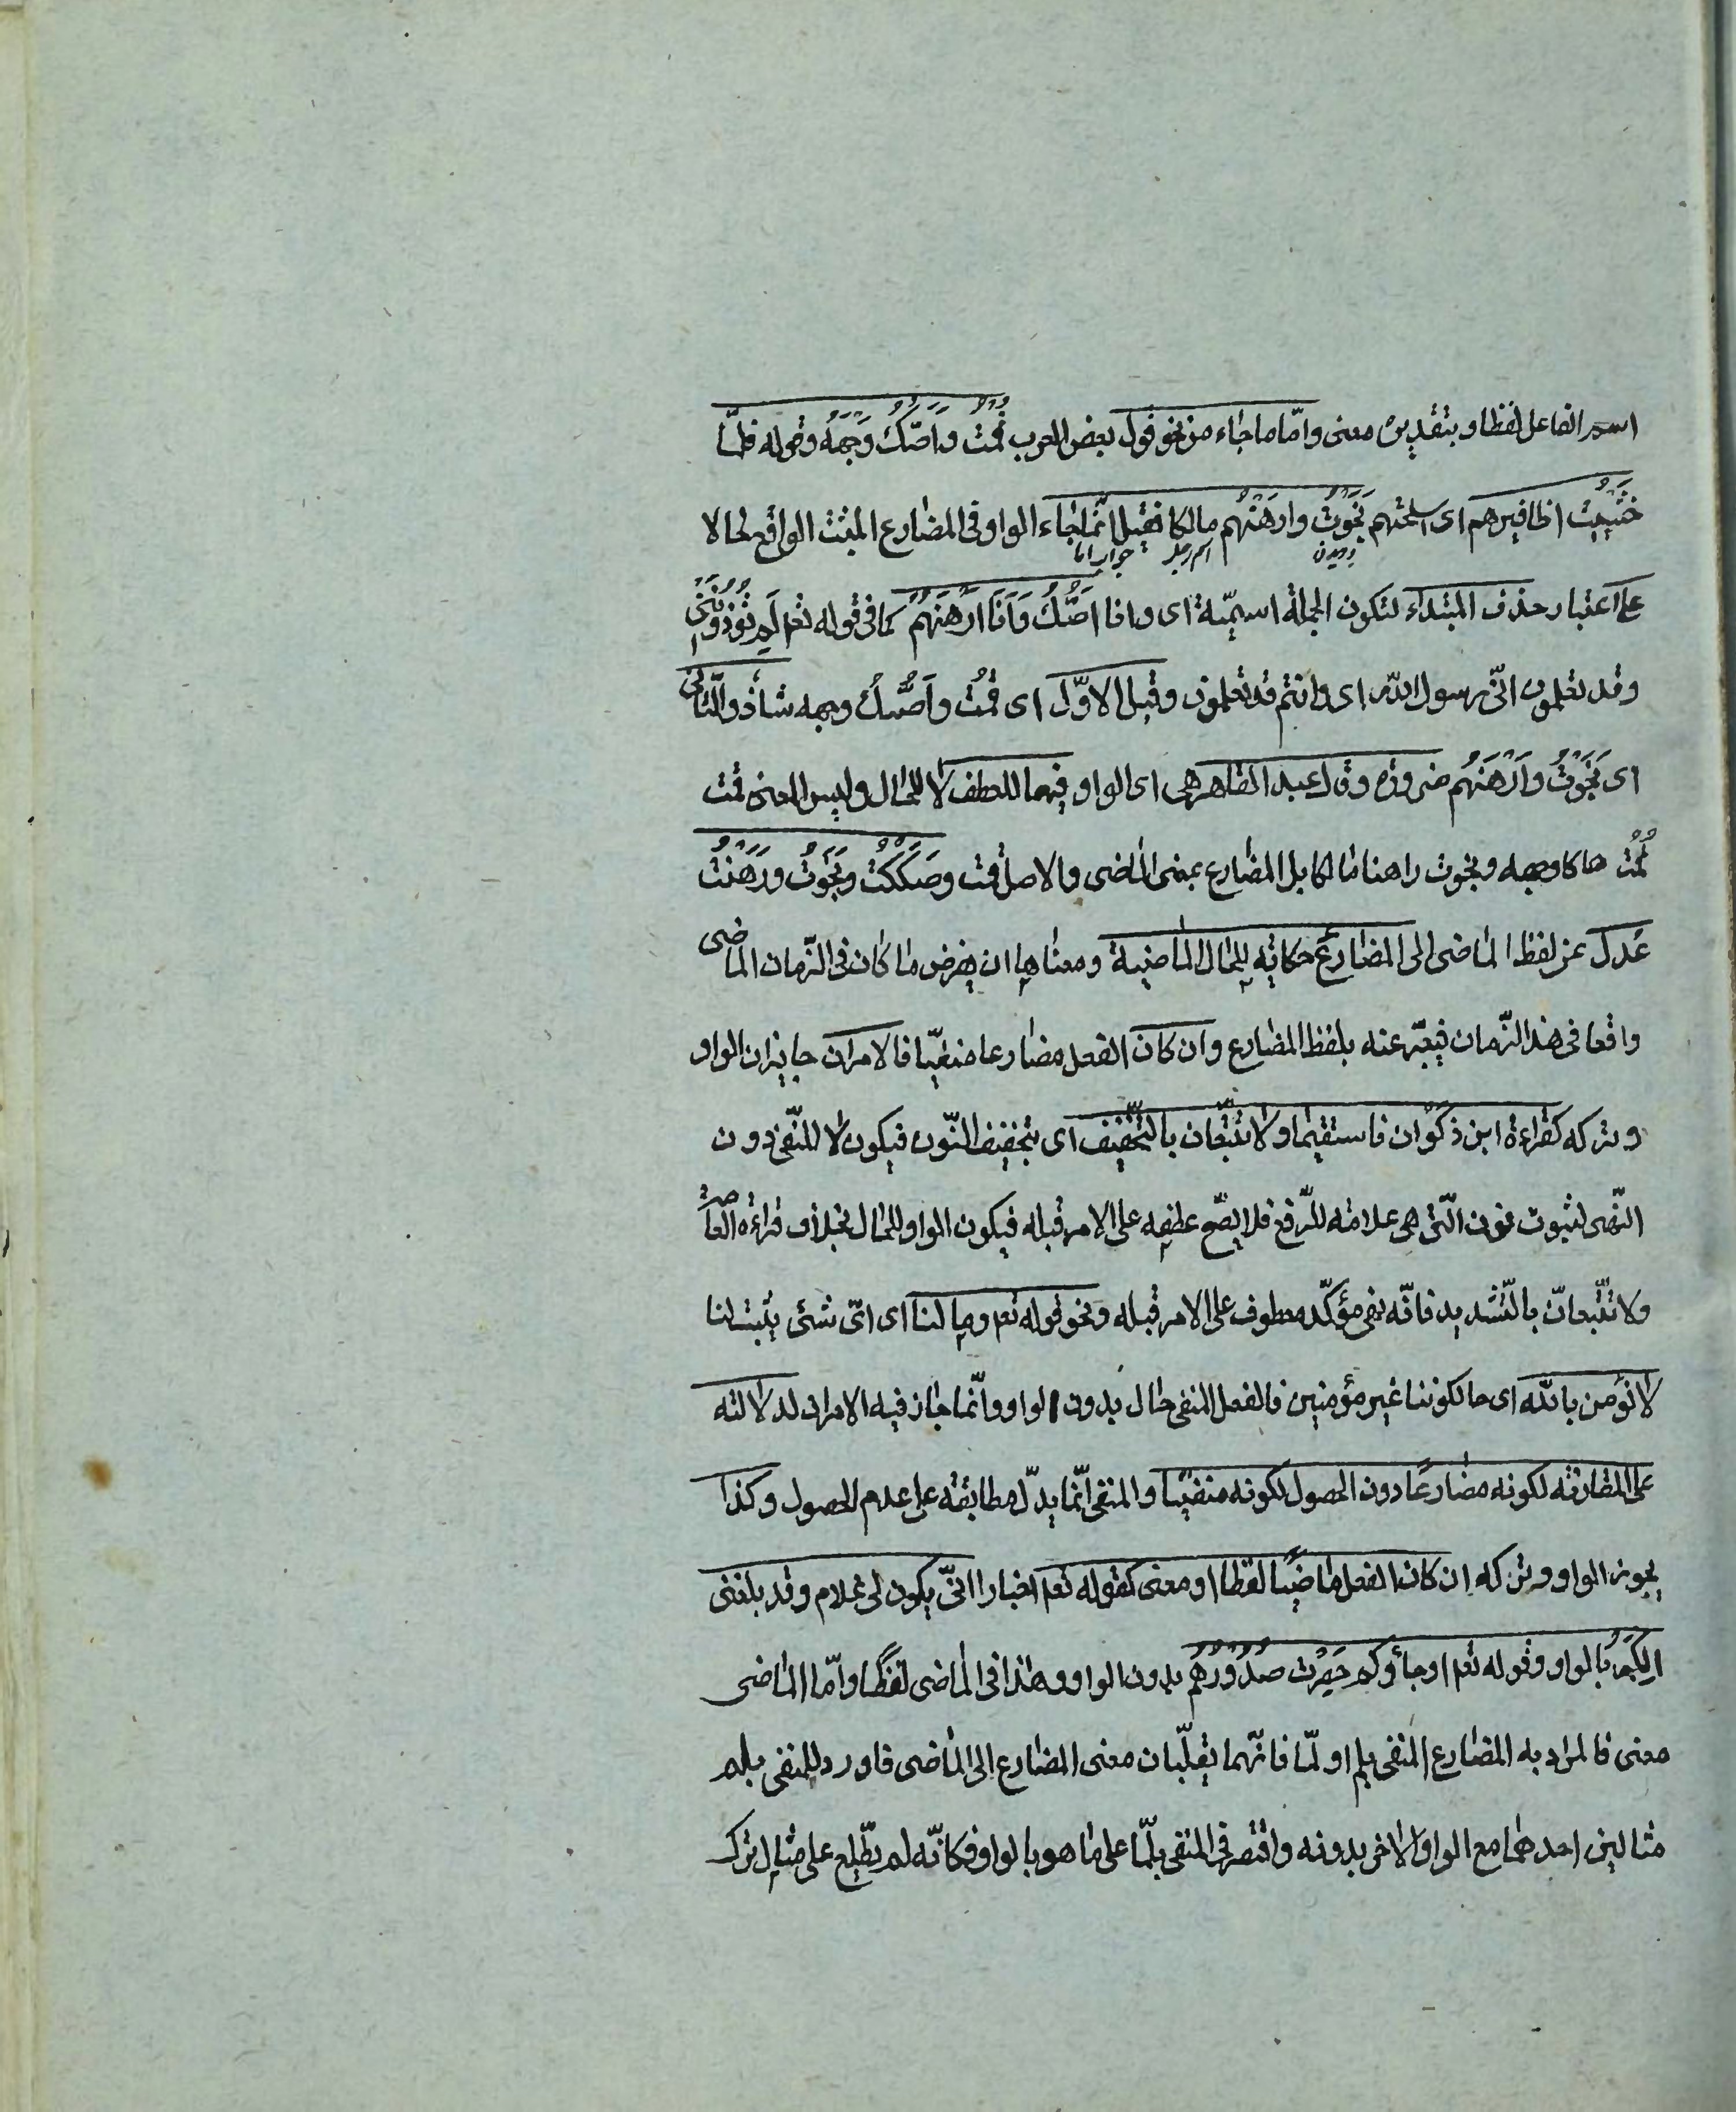 اسم الفاعل لفظا وبتقديره معنى وامّا ما جاء من نحو قول بعض العرب قمت واصكّ وجهه وقوله فلمّا
خشيت اظافيرهم اى اسلحتهم نجوت وارهنهم مالكا فقيل انّما جاء الواو فى المضارع المثبت الواقع حالا
اسم رجل جواب اما
على اعتبار حذف المبتداء لتكون الجملة اسميّة اى وانا اصكّ وانا ارهنهم كما فى قوله تعالى لم تؤذوننى
وقد تعلمون انّى رسول اللّه اى وانتم قد تعلمون وقيل الاوّل اى قمت واصكّ وجهه شاذ والثانى
اى نجوت وارهنهم ضرورة وقال عبد القاهر هى اى الواو فيهما للعطف لا للحال وليس المعنى قمت
قمت صاكا وجهه ونجوت راهنا مالكا بل المضارع بمعنى الماضى والاصل قمت وصككت ونجوت ورهنت
عدل عن لفظ الماضى الى المضارع حكاية للحال الماضية ومعناها ان يفرض ما كان فى الزّمان الماضى
واقعا فى هذا الزّمان فيعبّر عنه بلفظ المضارع وان كان الفعل مضارعا منفيّا فالامران جايزان الواو
وتركه كقراءة ابن ذكوان فاستقيما ولا تتّبعان بالتّخفيف اى بتخفيف النّون فيكون لا للنّفى دون
النّهى لثبوت نون الّتى هى علامة للرّفع فلا يصحّ عطفه على الامر قبله فيكون الواو للحال بخلاف قراءة العامّة
ولا تتّبعانّ بالتّشديد فانّه نهى مؤكّد معطوف على الامر قبله ونحو قوله تعم وما لنا اى اىّ شئ يثبت لنا
لا نؤمن باللّه اى حالكوننا غير مؤمنين فالفعل المنفى حال بدون الواو وانّما جاز فيه الامران لدلالته
على المقارنة لكونه مضارعًا دون الحصول لكونه منفيّا والمنفى انّما يدلّ مطابقة على عدم الحصول وكذا
يجوز الواو وتركه ان كان الفعل ماضيًا لفظا او معنى كقوله تعم اخبارا انّى يكون لى غلام وقد بلغنى
الكبر بالواو وقوله تعم او جاؤكم حصرت صدورهم بدون الواو وهذا فى الماضى لفظًا وامّا الماضى
معنى فالمراد به المضارع المنفى بلم او لمّا فانّهما يقلّبان معنى المضارع الى الماضى فاورد للمنفى بلم
مثالين احدهما مع الواو والاخر بدونه واقتصر فى المنفى بلمّا على ما هو بالواو فكانّه لم يطّلع على مثال ترك